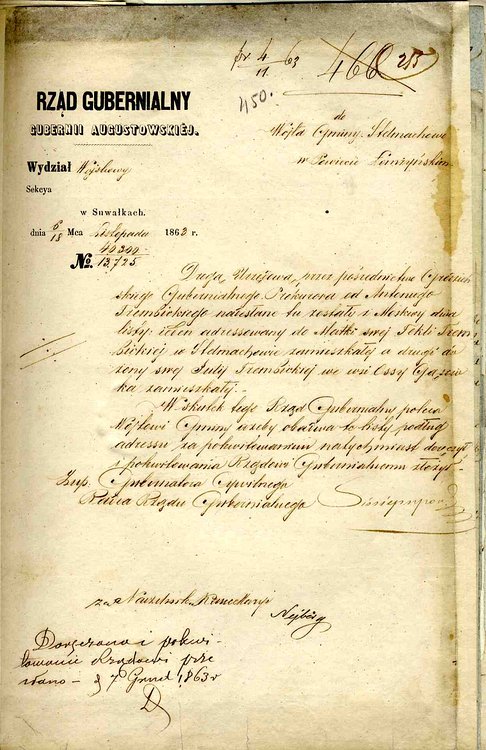 pr 4/11 63
466 255
450.
RZĄD GUBERNIALNY
GUBERNII AUGUSTOWSKIÉJ.
do
Wójta Gminy Stelmachowo
w Powiecie Łomżyńskim
Wydział Wojskowy
Sekcya
w Suwałkach.
dnia 6/18 Mca Listopada 1863 r
№. 13,725
Drogą Urzędową, przez pośrednictwo Grodzień
skiego Gubernialnego Prokurora od Antoniego
Trembickiego nadesłane tu zostały z Moskwy dwa
listy: jeden adressowany do Matki swej Tekli Trem
bickiej w Stelmachowie zamieszkałej a drugi do
żony swej Julij Trembickiej we wsi Ossy
ka zamieszkałej.
W skutek tego Rząd Gubernialny poleca
Wójtowi Gminy ażeby obadwa te listy podług
adressu za pokwitowaniem natychmiast doręczył
i pokwitowania Rządowi Gubernialnemu złożył
Gubernatora Cywilnego
Radca Rządu Gubernialnego
za Naczelnika Kancellaryi
Doręczono i pokwi
towanie Rządowi prze
słano d 7 Grud 1863 r